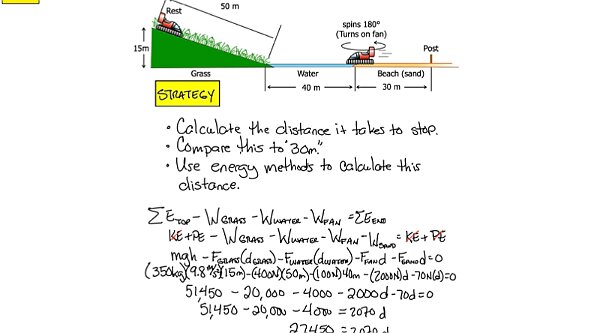 Rest
50 m
spins 180°
(Turns on fan)
Post
15m
Grass
Water
Beach (sand)
40 m
30 m
STRATEGY
• Calculate the distance it takes to stop.
• Compare this to "30m."
• Use energy methods to calculate this
distance.
ΣE_TOP - W_GRASS - W_WATER - W_FAN = ΣE_END
KE + PE - W_GRASS - W_WATER - W_FAN - W_SAND = KE + PE
mgh - F_GRASS(d_GRASS) - F_WATER(d_WATER) - F_FAN d - F_SAND d = 0
(350kg)(9.8 m/s²)(15m) - (400N)(50m) - (100N)40m - (2000N)d - 70N(d) = 0
51,450 - 20,000 - 4000 - 2000d - 70d = 0
51,450 - 20,000 - 4000 = 2070 d
27450 = 2070 d